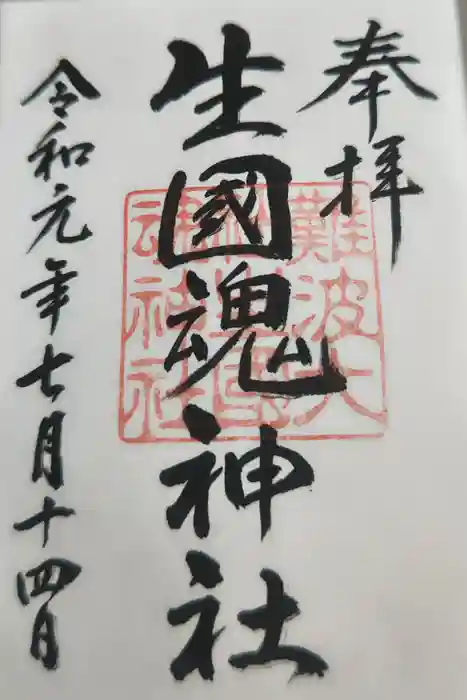 奉拝
生國魂神社
令和元年七月十四日
難波大
社生國
魂神社